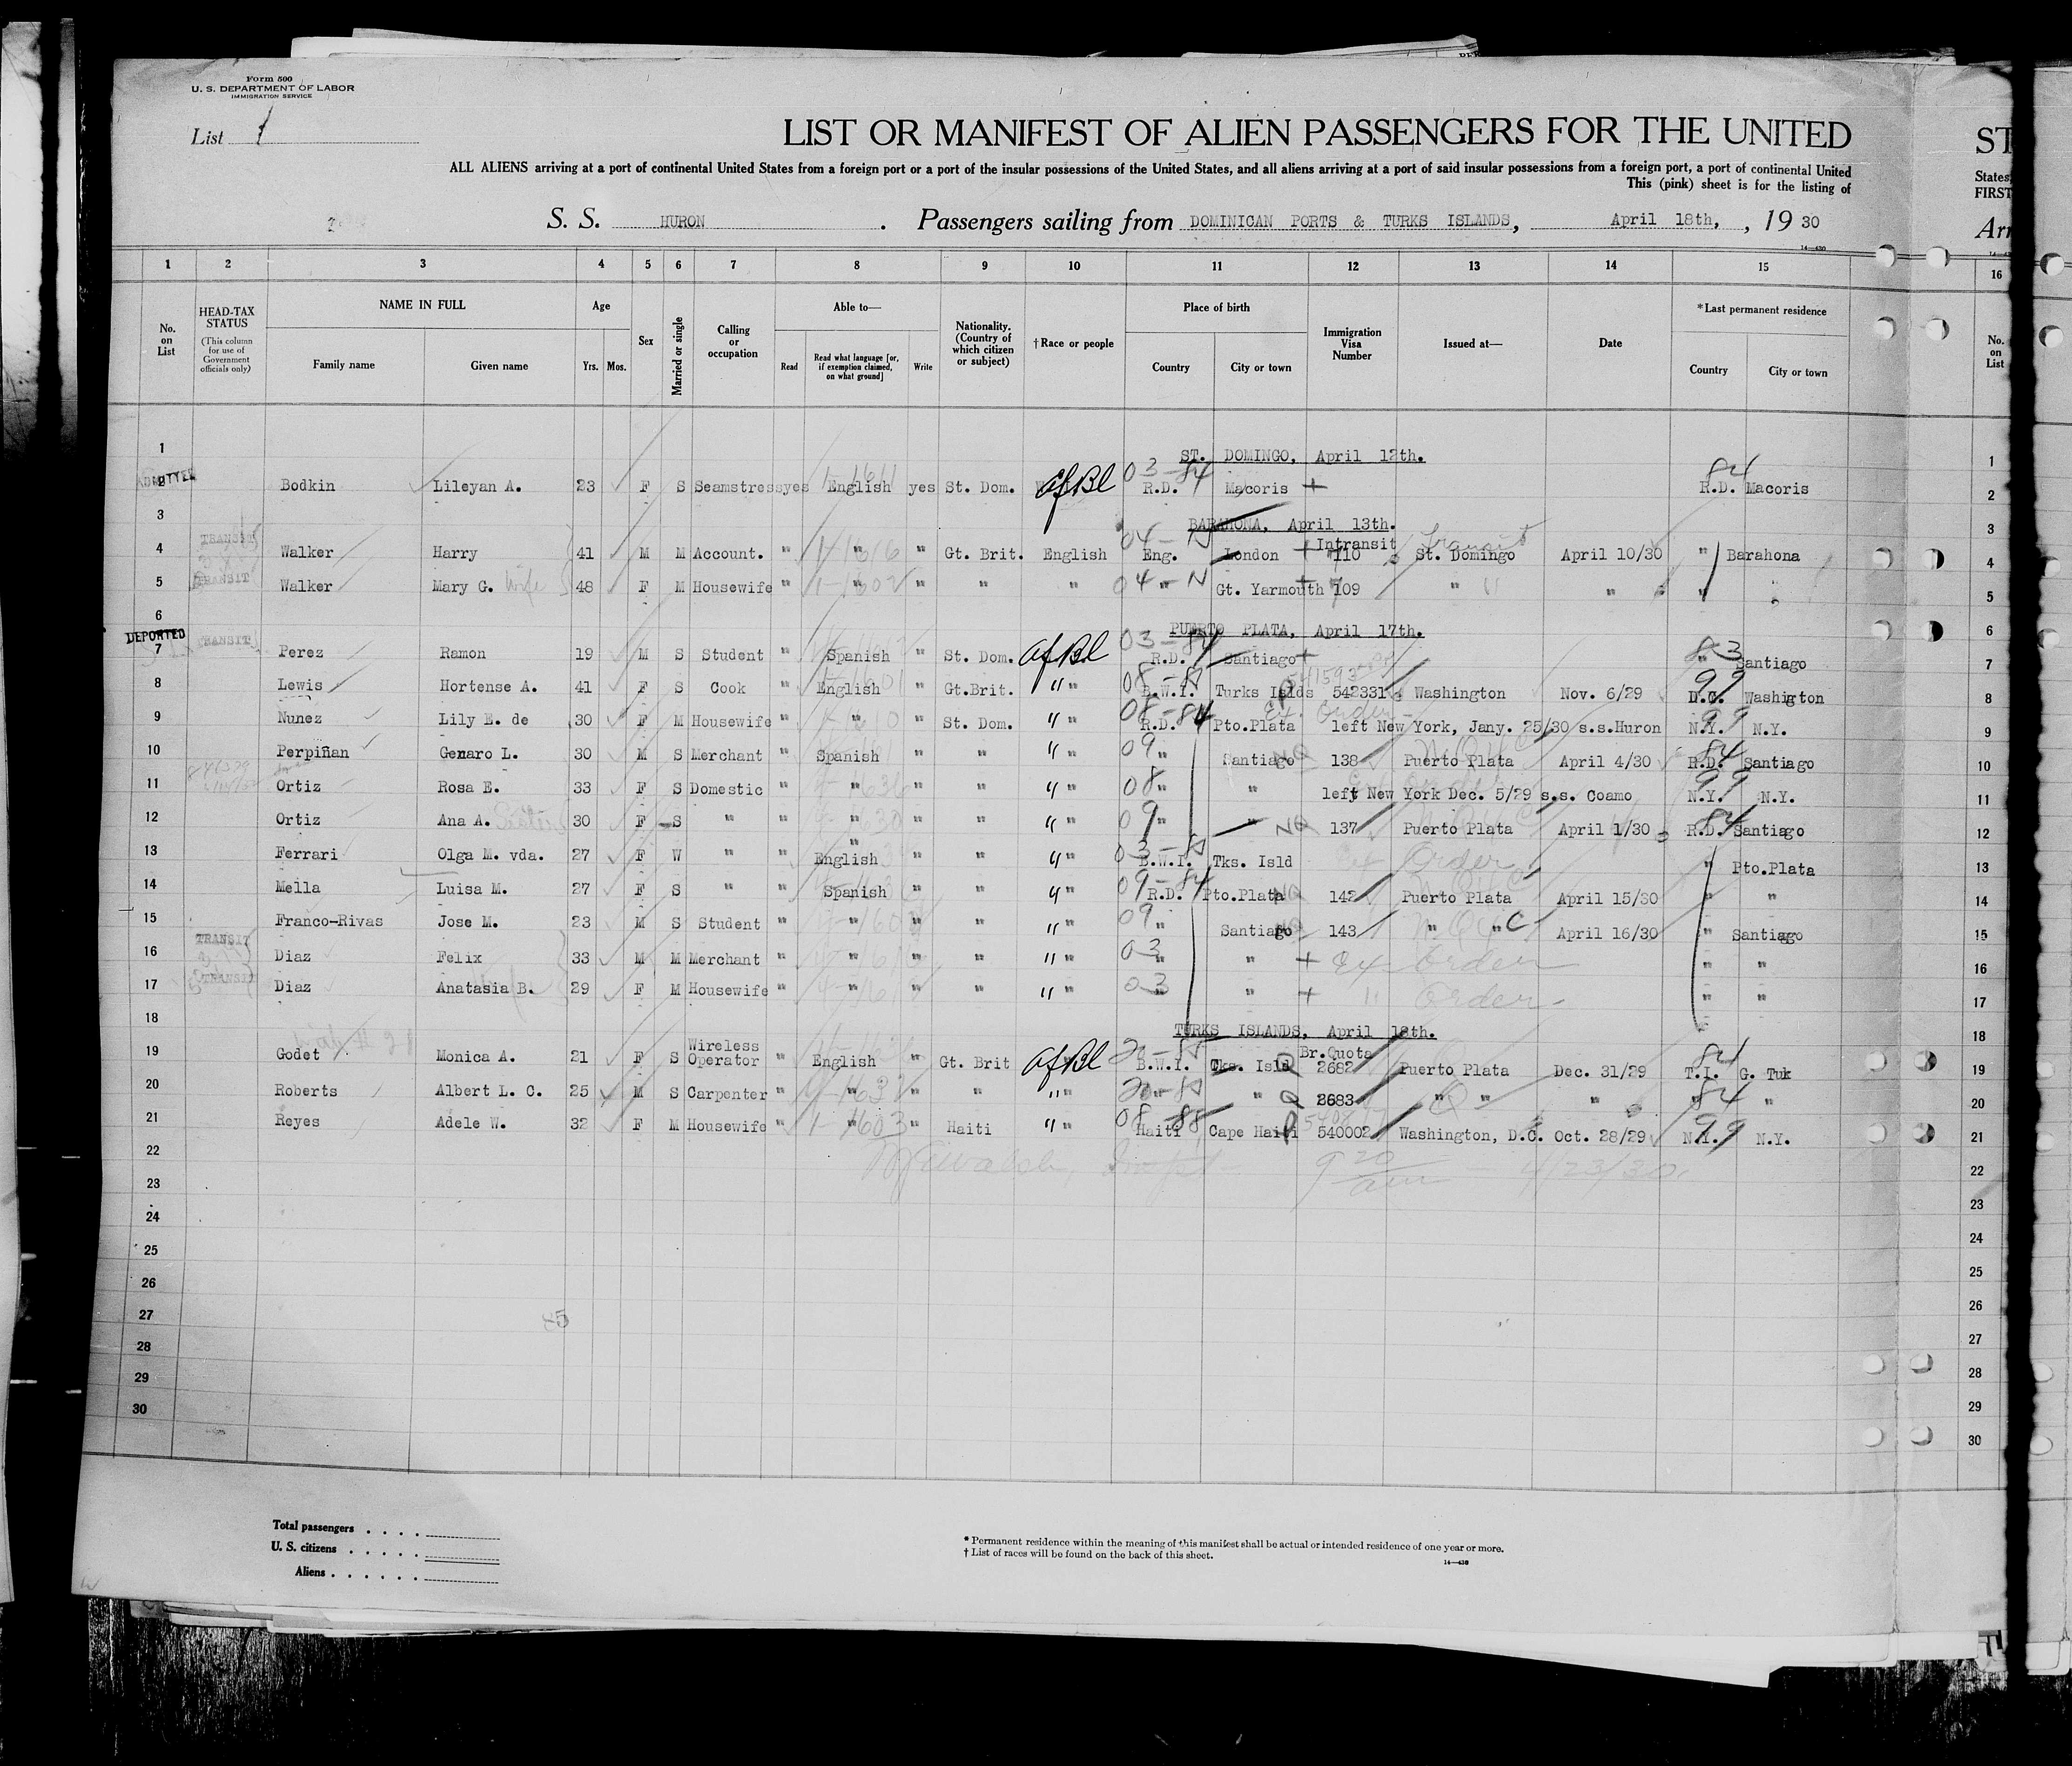 Form 500
U. S. DEPARTMENT OF LABOR
IMMIGRATION SERVICE
List 1
LIST OR MANIFEST OF ALIEN PASSENGERS FOR THE UNITED
ALL ALIENS arriving at a port of continental United States from a foreign port or a port of the insular possessions of the United States, and all aliens arriving at a port of said insular possessions from a foreign port, a port of continental United
This (pink) sheet is for the listing of
S. S. HURON . Passengers sailing from DOMINICAN PORTS & TURKS ISLANDS, April 18th, , 19 30
1 2 3 4 5 6 7 8 9 10 11 12 13 14 15
No. on List
HEAD-TAX STATUS (This column for use of Government officials only)
NAME IN FULL Family name Given name
Age Yrs. Mos.
Sex
Married or single
Calling or occupation
Able to— Read Read what language [or, if exemption claimed, on what ground] Write
Nationality. (Country of which citizen or subject)
†Race or people
Place of birth Country City or town
Immigration Visa Number
Issued at—
Date
*Last permanent residence Country City or town
1 ST. DOMINGO, April 12th.
2 ADMITTED Bodkin Lileyan A. 23 F S Seamstress yes English yes St. Dom. Af Bl 03-84 R.D. Macoris 84 R.D. Macoris
3 BARAHONA, April 13th.
4 TRANSIT Walker Harry 41 M M Account. " " " Gt. Brit. English Eng. London Intransit 110 Transit St. Domingo April 10/30 " Barahona
5 TRANSIT Walker Mary G. Wife 48 F M Housewife " " " " " " Gt. Yarmouth 109 " " " "
6 PUERTO PLATA, April 17th.
7 DEPORTED TRANSIT Perez Ramon 19 M S Student " Spanish " St. Dom. Af Bl 03-84 R.D. Santiago 83 " Santiago
8 Lewis Hortense A. 41 F S Cook " English " Gt.Brit. " B.W.I. Turks Islds 542331 Washington Nov. 6/29 99 D.C. Washigton
9 Nunez Lily E. de 30 F M Housewife " " " St. Dom. " 08-84 R.D. Pto.Plata left New York, Jany. 25/30 s.s.Huron 99 N.Y. N.Y.
10 Perpiñan Genaro L. 30 M S Merchant " Spanish " " " 09 " Santiago 138 Puerto Plata April 4/30 84 R.D. Santiago
11 Ortiz Rosa E. 33 F S Domestic " " " " " 08 " " left New York Dec. 5/29 s.s. Coamo 99 N.Y. N.Y.
12 Ortiz Ana A. Sister 30 F S " " " " " " 09 " NQ 137 Puerto Plata April 1/30 84 R.D. Santiago
13 Ferrari Olga M. vda. 27 F W " " English " " " B.W.I. Tks. Isld Order " Pto.Plata
14 Mella Luisa M. 27 F S " " Spanish " " " 09-84 R.D. Pto.Plata 142 Puerto Plata April 15/30 " "
15 Franco-Rivas Jose M. 23 M S Student " " " " " 09 " Santiago 143 " " April 16/30 " Santiago
16 TRANSIT Diaz Felix 33 M M Merchant " " " " " 03 " " Ex Order " "
17 TRANSIT Diaz Anatasia B. 29 F M Housewife " " " " " 03 " " " Order " "
18 TURKS ISLANDS, April 18th.
19 Godet Monica A. 21 F S Wireless Operator " English " Gt. Brit Af Bl B.W.I. Tks. Isld Br.Quota 2682 Puerto Plata Dec. 31/29 84 T.I. G. Tuk
20 Roberts Albert L. C. 25 M S Carpenter " " " " " " " 2683 " " " 84 " "
21 Reyes Adele W. 32 F M Housewife " " " Haiti " 08-88 Haiti Cape Haiti 540002 Washington, D.C. Oct. 28/29 99 N.Y. N.Y.
22 9 20 am 4/23/30
23
24
25
26
27
85
28
29
30
Total passengers . . . .
U. S. citizens . . . . .
Aliens . . . . . .
* Permanent residence within the meaning of this manifest shall be actual or intended residence of one year or more.
† List of races will be found on the back of this sheet.
14—430
ST
States,
FIRST
Arr
16
No. on List
1
2
3
4
5
6
7
8
9
10
11
12
13
14
15
16
17
18
19
20
21
22
23
24
25
26
27
28
29
30